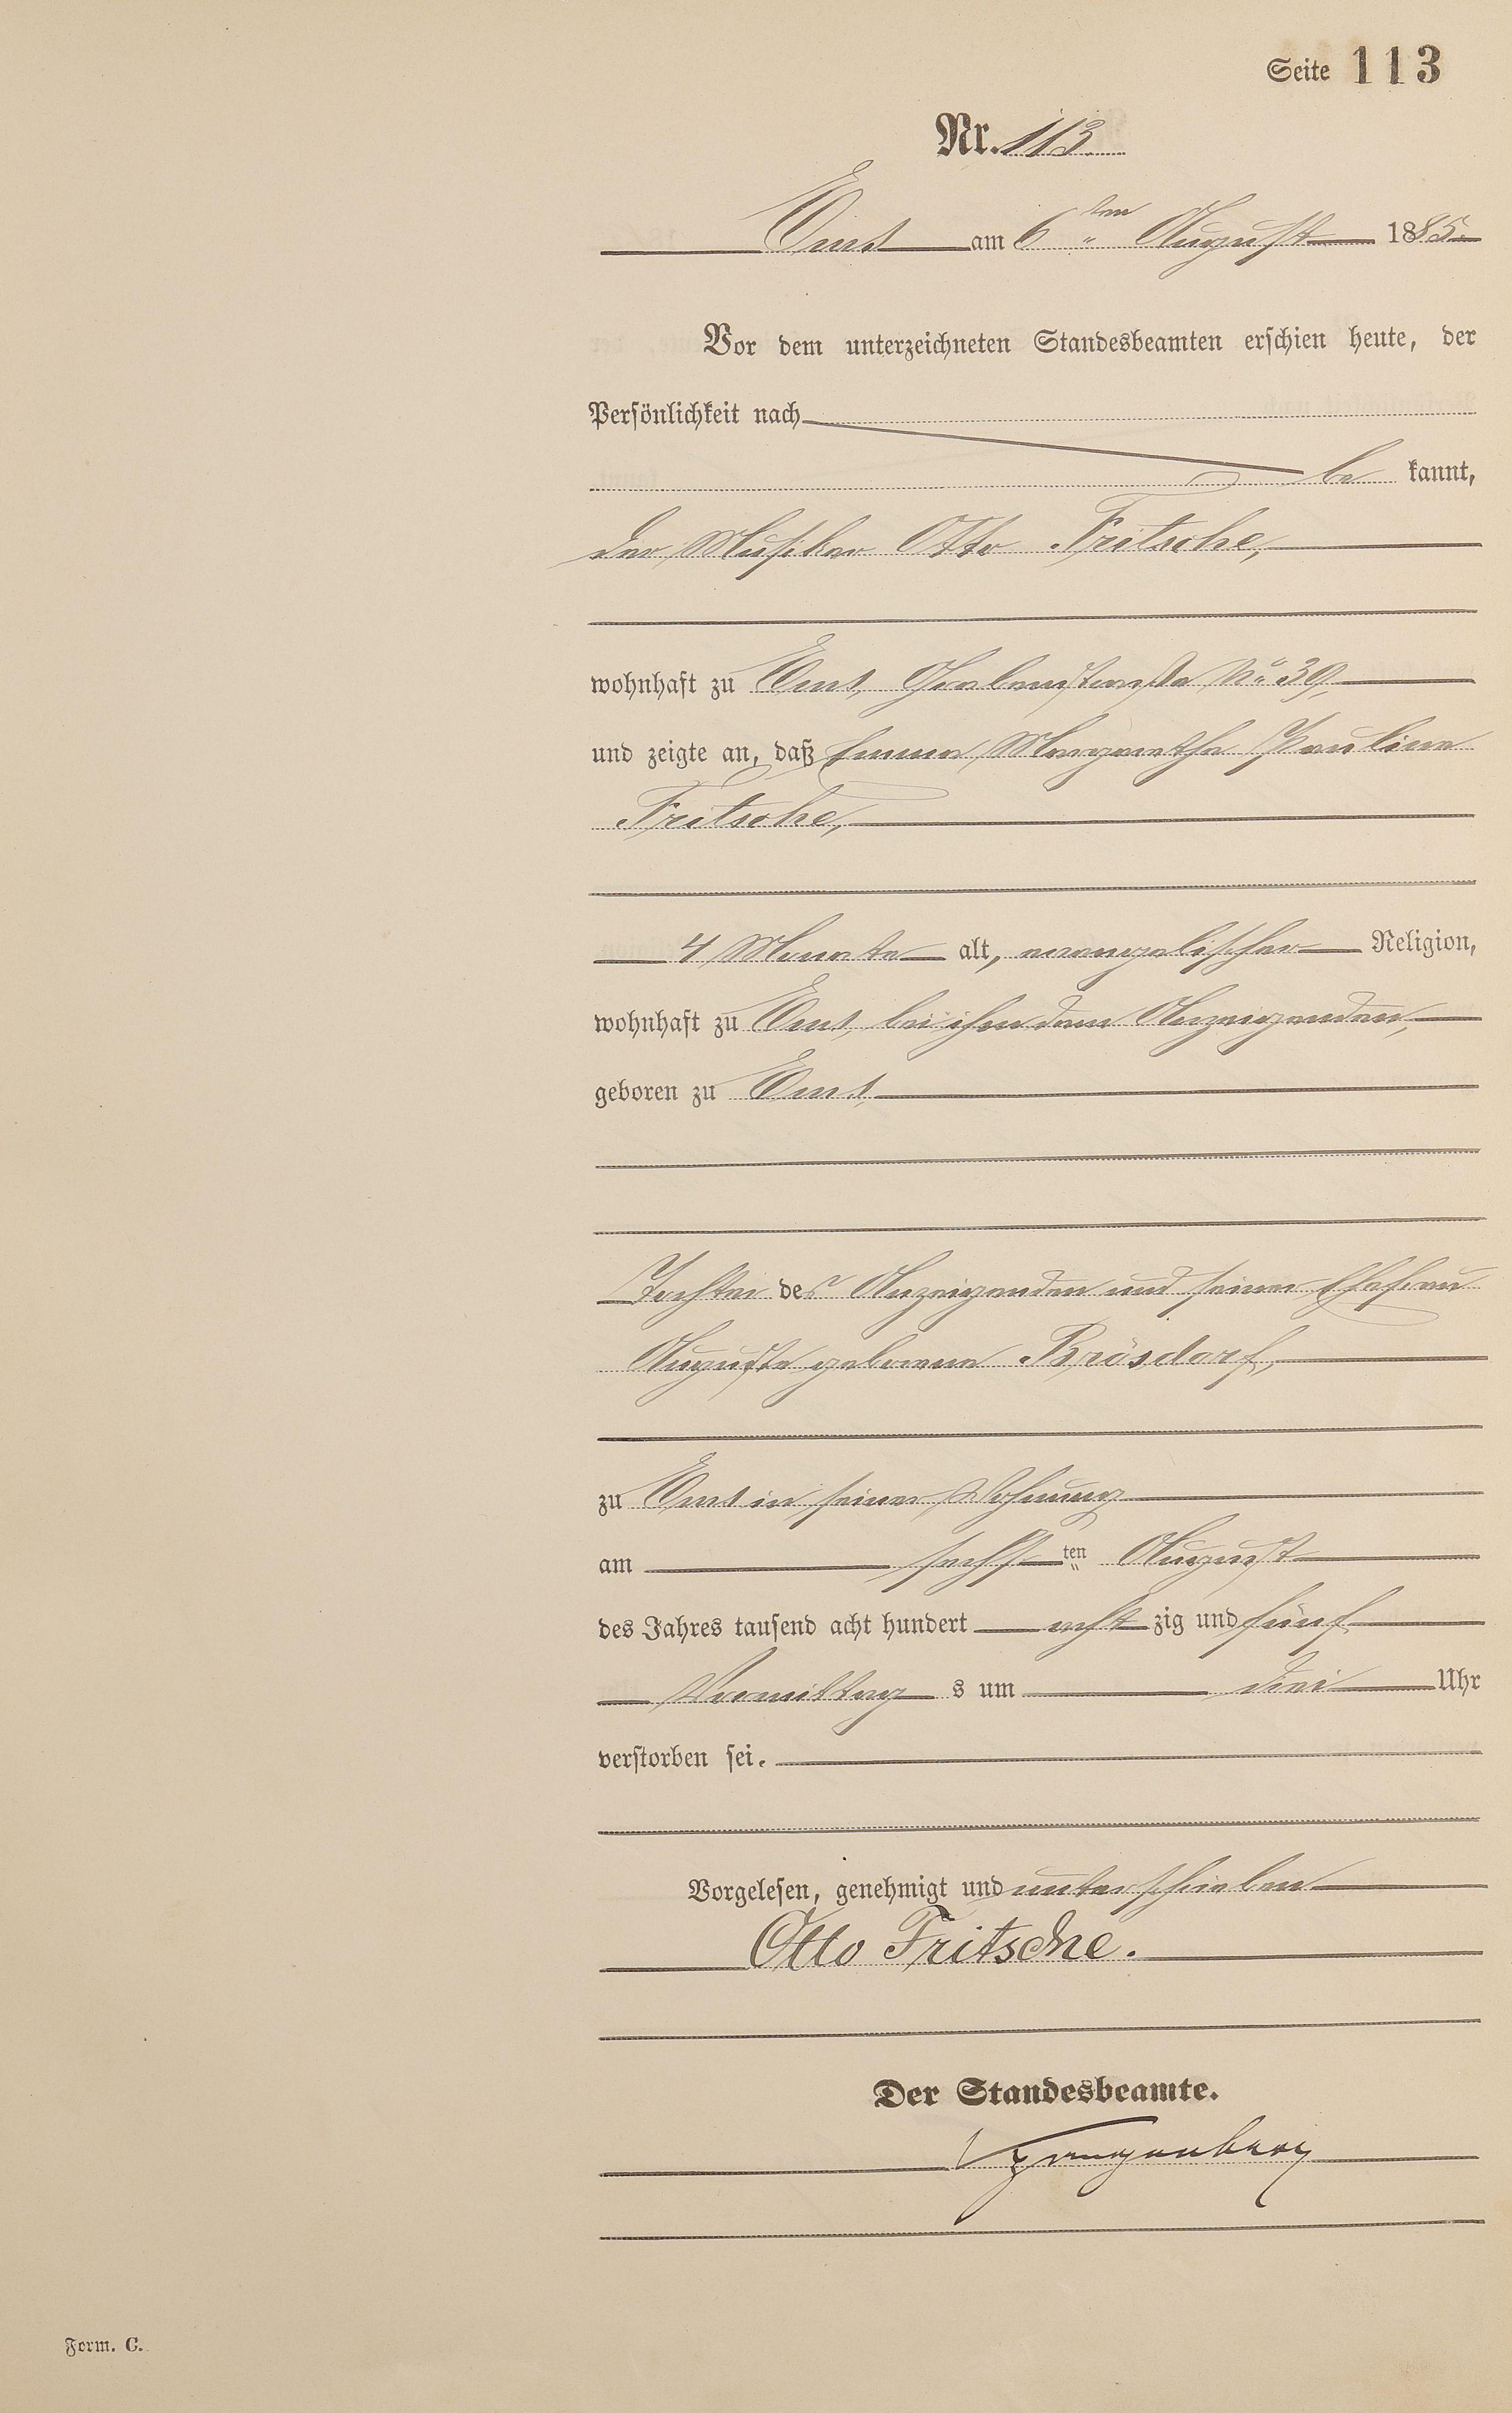 Seite 113
Nr. 113
Ems am 6ten August 1885.
Vor dem unterzeichneten Standesbeamten erschien heute, der
Persönlichkeit nach
be kannt,
der Musiker Otto Fritsche,
wohnhaft zu Ems, Grabenstraße No 39,
und zeigte an, daß Emma Margarethe Pauline
Fritsche,
4 Monate alt, evangelischer Religion,
wohnhaft zu Ems, bei ihm dem Anzeigenden,
geboren zu Ems,
Tochter des Anzeigenden und seiner Ehefrau
Auguste geborene Brösdorf,
zu Ems in seiner Wohnung
am sechsten August
des Jahres tausend acht hundert acht zig und fünf
Vormittag s um drei Uhr
verstorben sei.
Vorgelesen, genehmigt und unterschrieben
Otto Fritsche.
Der Standesbeamte.
Form. C.